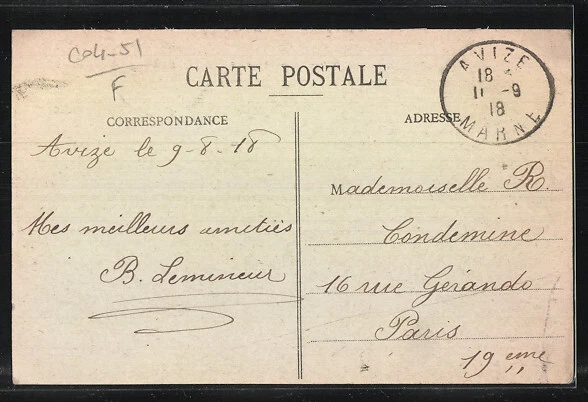 Co4-51
F
CARTE POSTALE
AVIZE
18
11 -9
18
MARNE
CORRESPONDANCE
ADRESSE
Avize le 9-8-18
Mes meilleurs amitiés
B. Lemineur
Mademoiselle R.
Condemine
16 rue Gérando
Paris
19 eme